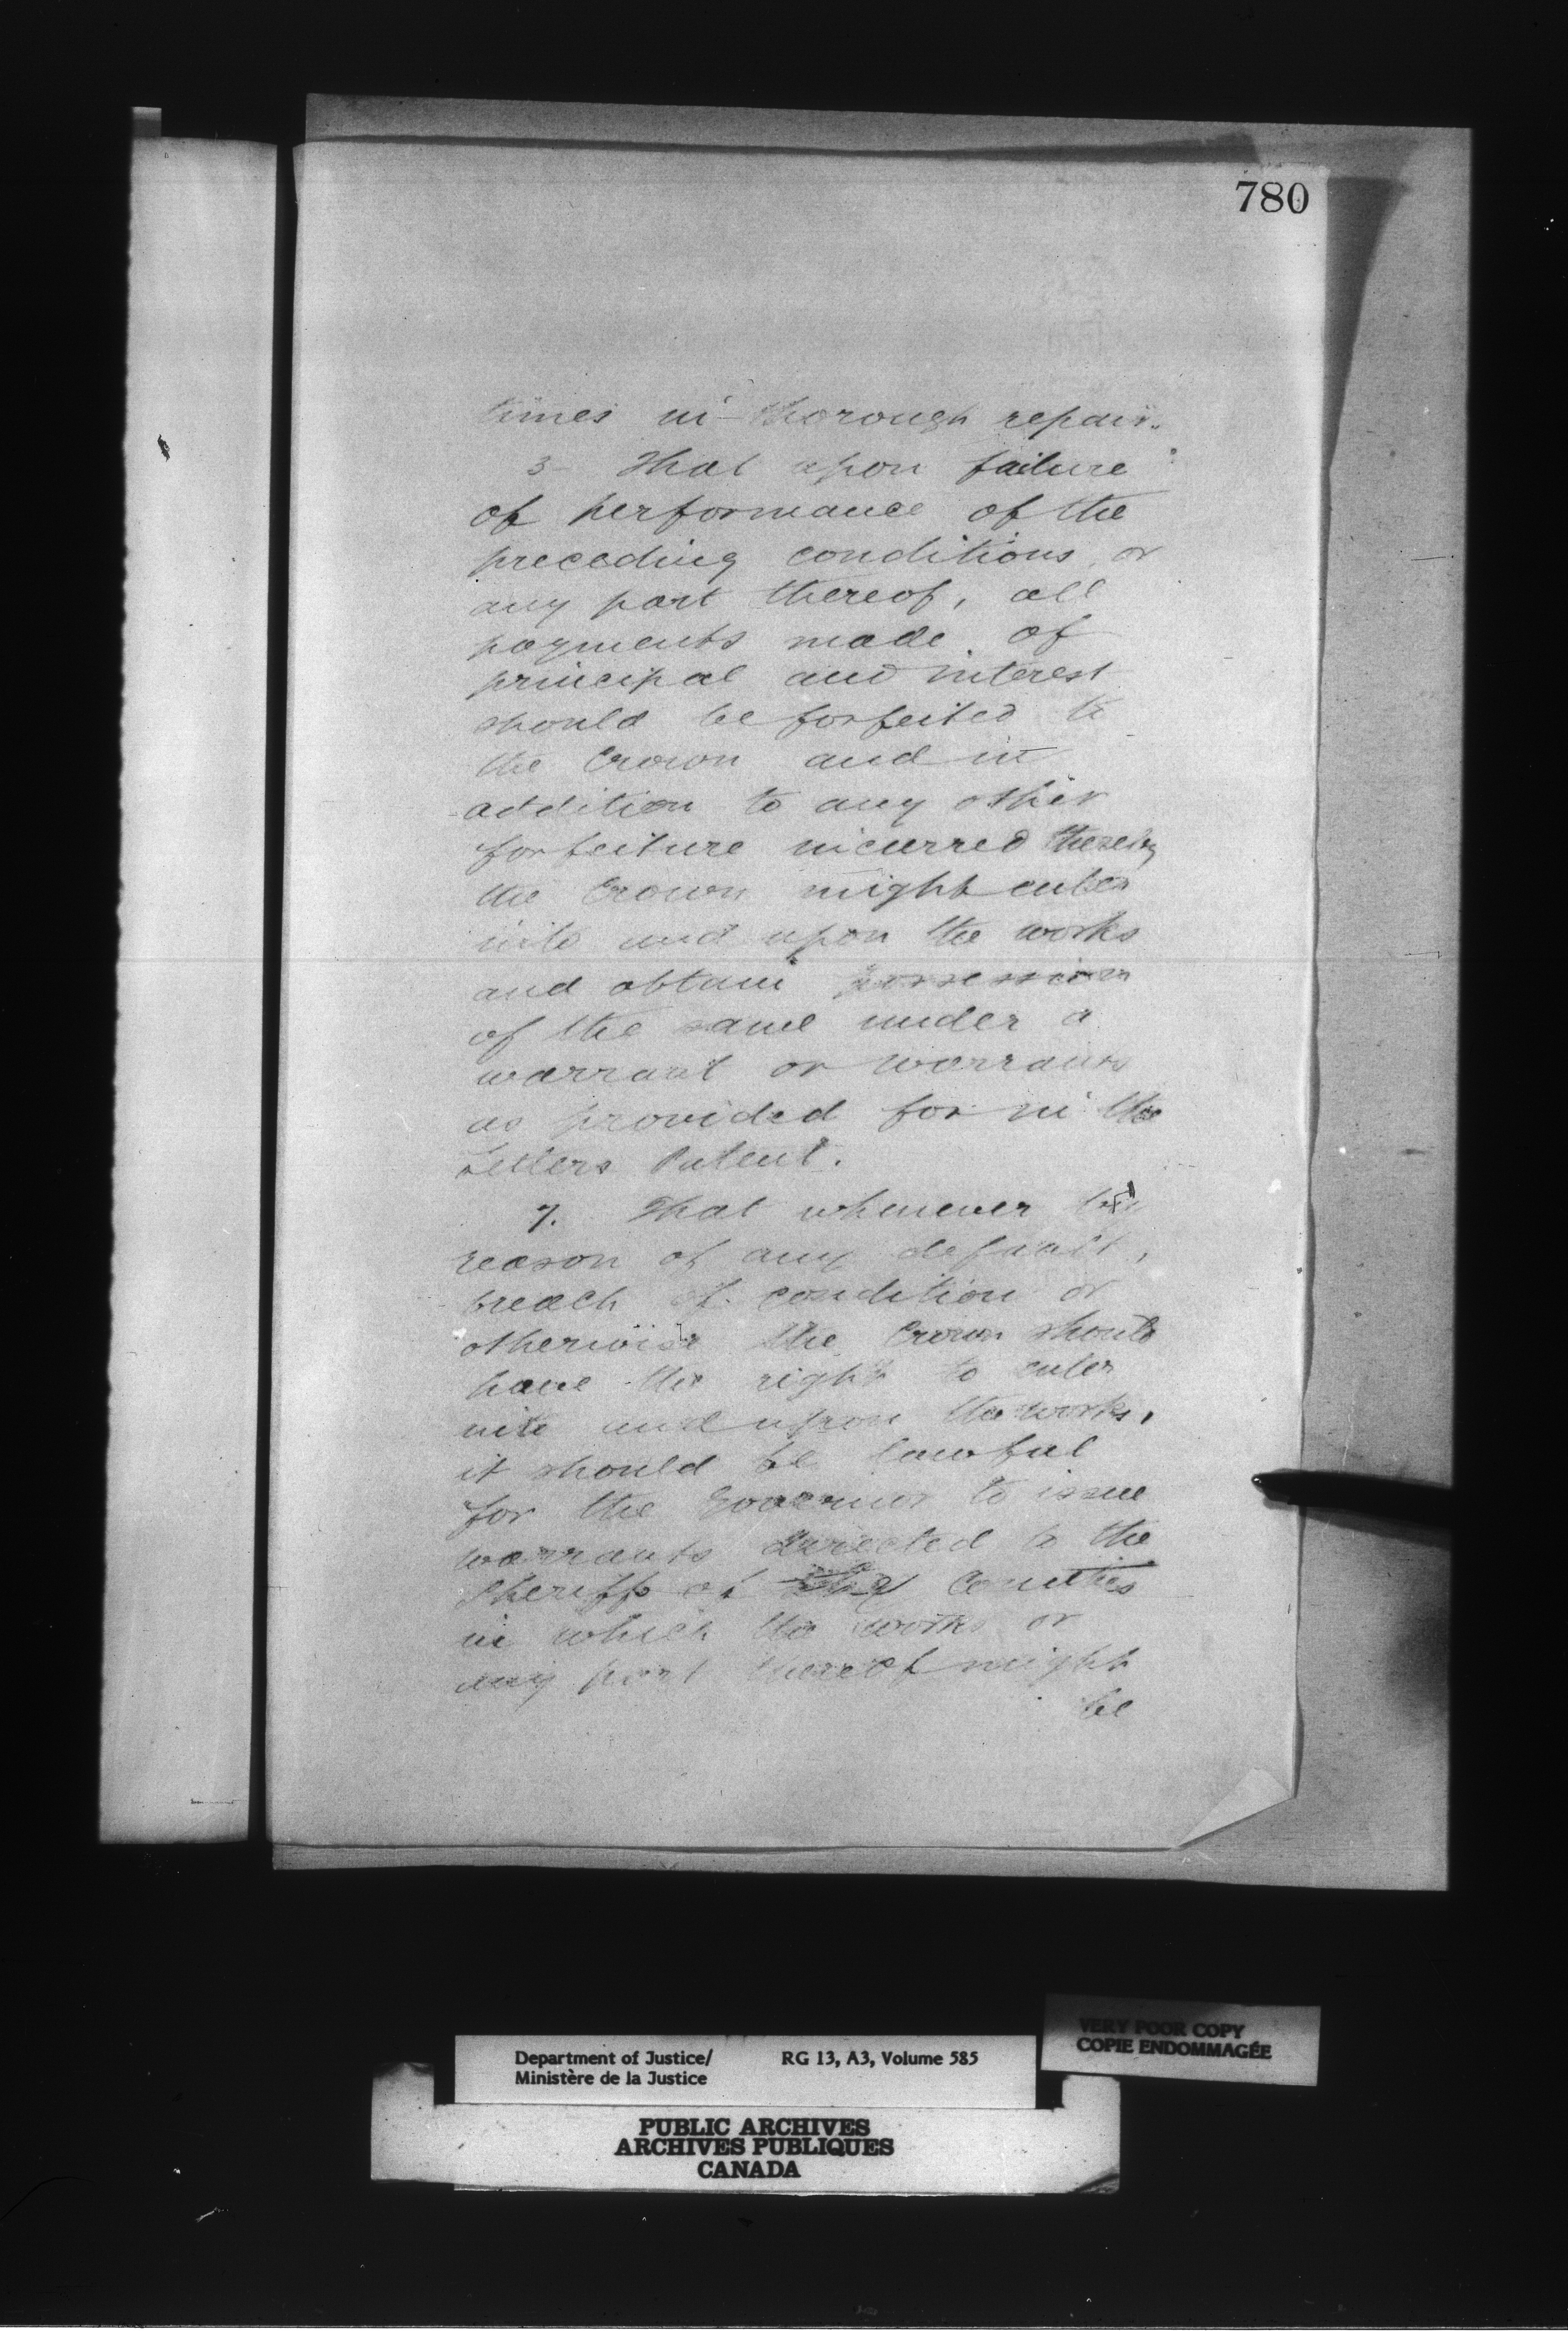 780
times in thorough repair.
3- That upon failure
of performance of the
preceding conditions, or
any part thereof, all
payments made of
principal and interest
should be forfeited to
the Crown and in
addition to any other
forfeiture incurred thereby
the Crown might enter
into and upon the works
and obtain possession
of the same under a
warrant or warrants
as provided for in the
Letters Patent.
7. That whenever by
reason of any default,
breach of condition or
otherwise the Crown should
have the right to enter
into and upon the works,
it should be lawful
for the Governor to issue
warrants directed to the
Sheriffs of the Counties
in which the works or
any part thereof might
be
VERY POOR COPY
COPIE ENDOMMAGÉE
Department of Justice/ RG 13, A3, Volume 585
Ministère de la Justice
PUBLIC ARCHIVES
ARCHIVES PUBLIQUES
CANADA